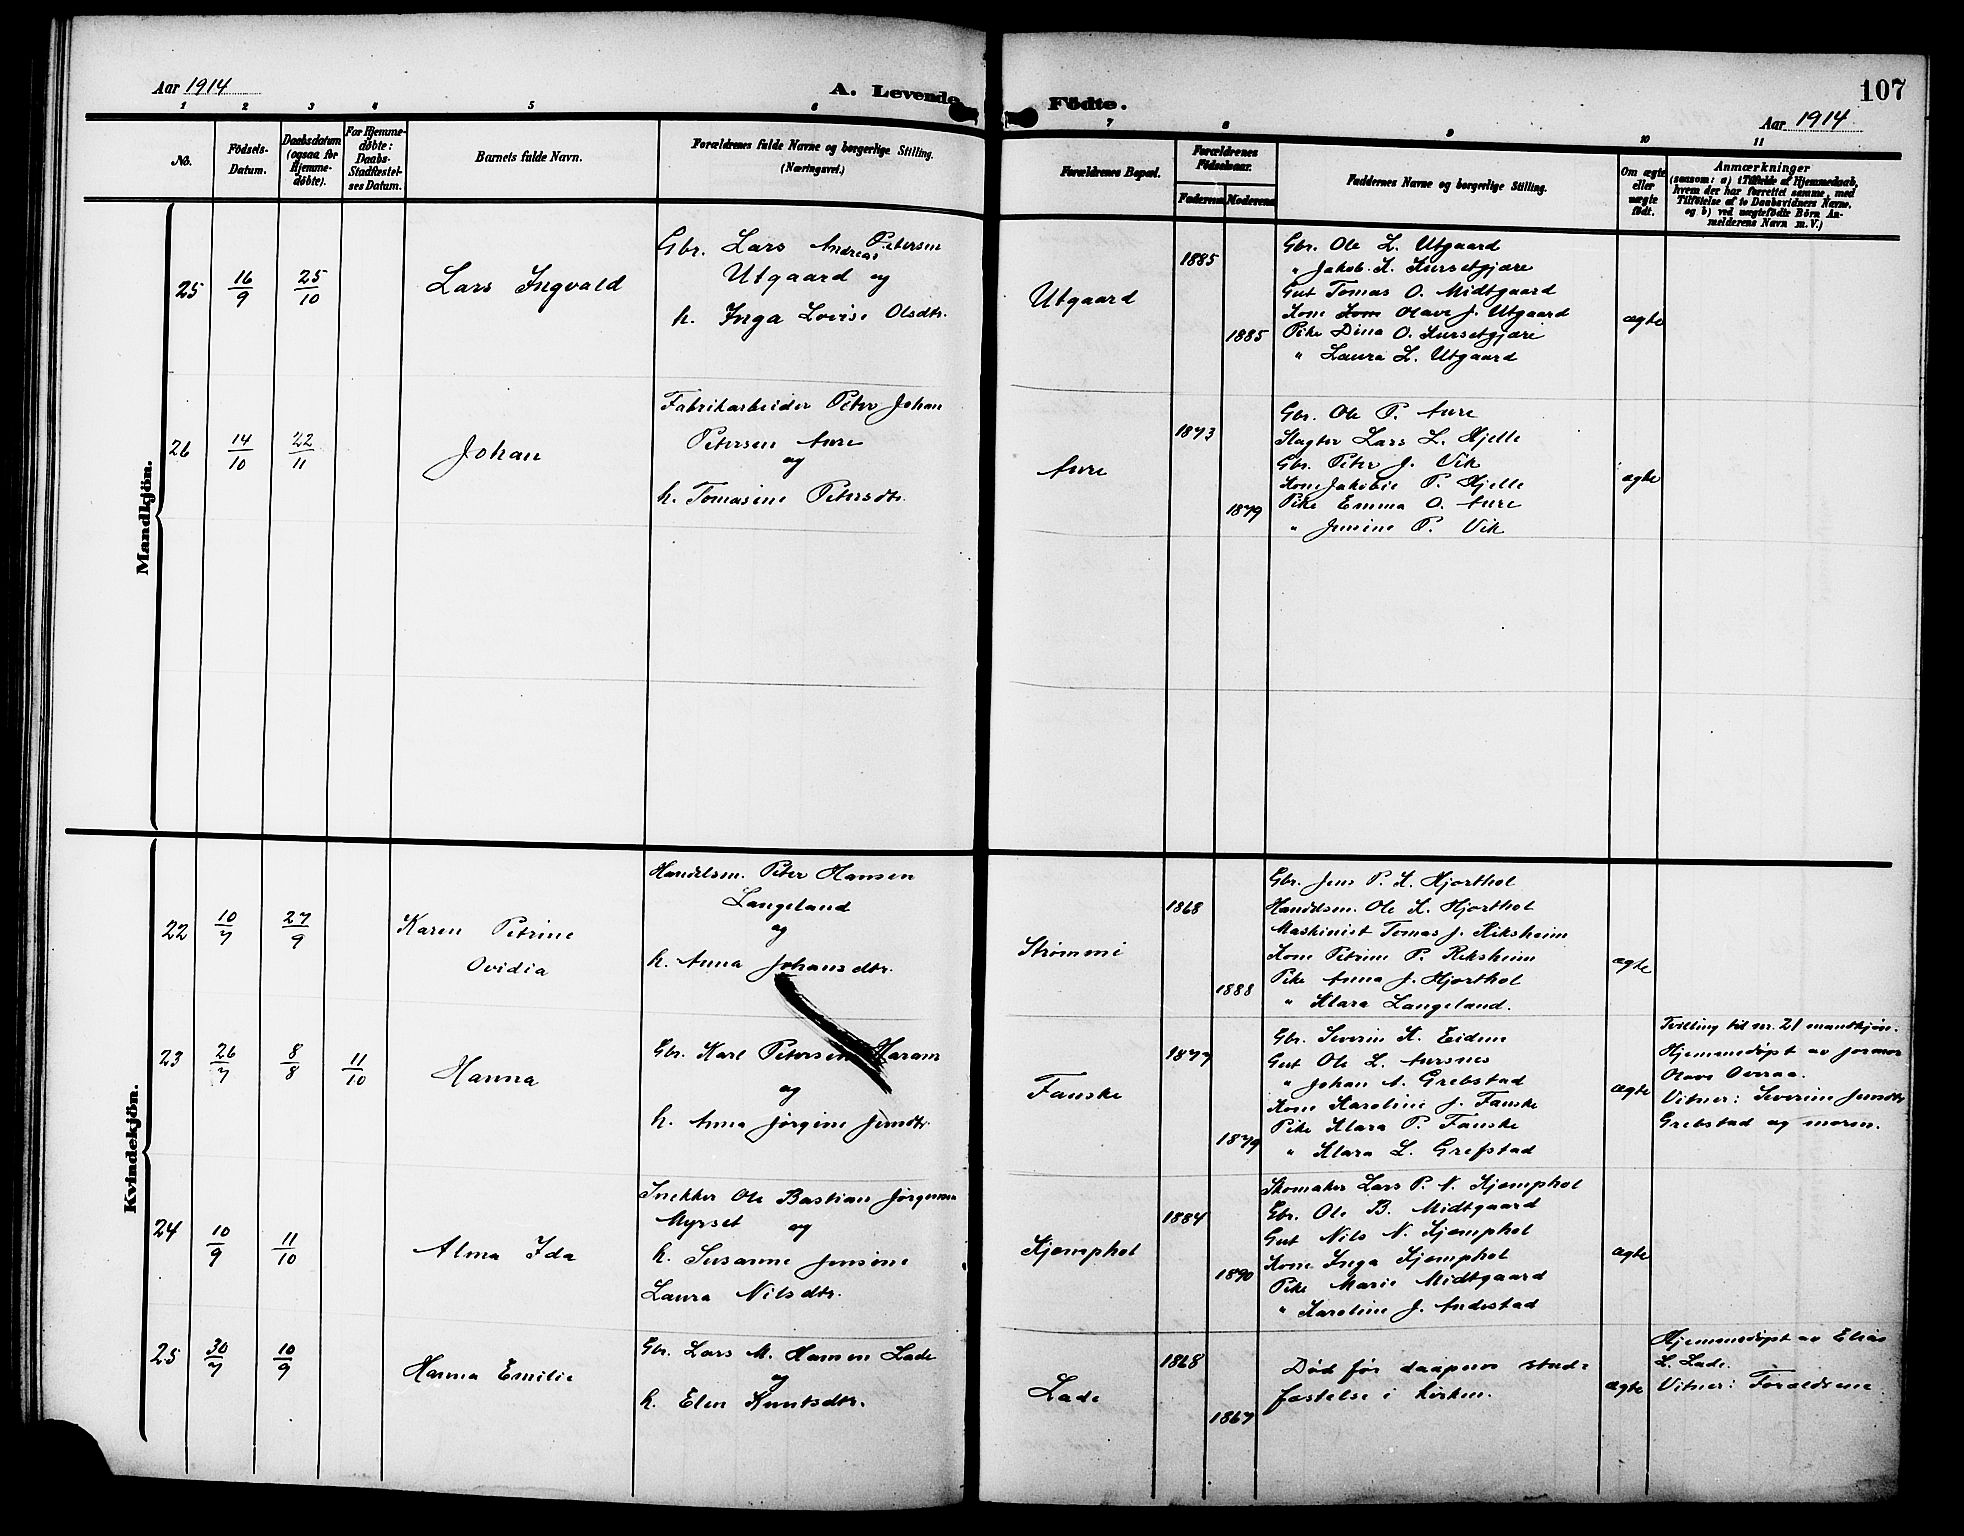 Aar 1914
A. Levende
Födte.
107
Aar 1914
1 2 3 4 5 6 7 8 9 10 11
No.
Födsels-
Datum.
Daabsdatum
(ogsaa for
Hjemme-
døbte).
For Hjemme-
döbte:
Daabs-
Stadfæstel-
ses Datum.
Barnets fulde Navn.
Forældrenes fulde Navne og borgerlige Stilling.
(Næringsvei.)
Forældrenes Bopæl.
Forældrenes
Födselsaar.
Faderens
Moderens
Faddernes Navne og borgerlige Stilling.
Om ægte
eller
uægte
födt.
Anmærkninger
(saasom: a) i Tilfælde af Hjemmedaab,
hvem der har forrettet samme, med
Tilföielse af to Daabsvidners Navne,
og b) ved uægtefödte Börn An-
melderens Navn m. V.)
Mandkjön.
25
16/9
25/10
Lars Ingvald
Gbr. Lars Andreas Petersen
Utgaard og
h. Inga Lovise Olsdtr.
Utgaard
1885
1885
Gbr. Ole L. Utgaard
" Jakob K. Kursetgjære
Gut Tomas O. Midtgaard
Kone Kone Olave J. Utgaard
Pike Dina O. Kursetgjære
" Laura L. Utgaard
ægte
26
14/10
22/11
Johan
Fabrikarbeider Peter Johan
Petersen Aure
og
h. Tomasine Petersdtr.
Aure
1873
1879
Gbr. Ole P. Aure
Slagter Lars L. Hjelle
Gbr. Peter J. Vik
Kone Jakobie P. Hjelle
Pike Emma O. Aure
" Jensine P. Vik
ægte
Kvindekjön.
22
10/7
27/9
Karen Petrine
Ovidia
Handelsm. Peter Hansen
Langeland
og
h. Anna Johansdtr.
Strømme
1868
1888
Gbr. Jens P. K. Hjorthol
Handelsm. Ole K. Hjorthol
Maskinist Tomas J. Riksheim
Kone Petrine P. Riksheim
Pike Anna J. Hjorthol
" Klara Langeland.
ægte
23
26/7
8/8
11/10
Hanna
Gbr. Karl Petersen Harans
og
h. Anna Jørgine Jensdtr.
Fauske
1877
1879
Gbr. Severin K. Eidem
Gut Ole L. Aursnes
" Johan A. Grebstad
Kone Karoline J. Fauske
Pike Klara P. Fauske
" Klara L. Grefstad
ægte
Tvilling til nr. 21 mandkjøn.
Hjemmedøpt av jormor
Olave Overaa.
Vitner: Severine Jensdtr
Grebstad og moren.
24
10/9
11/10
Alma Ida
Snekker Ole Bastian Jørgensen
Myrset og
h. Susanne Jensine
Laura Nilsdtr.
Kjemphol
1884
1890
Skomaker Lars P. N. Kjemphol
Gbr. Ole B. Midtgaard
Gut Nils N. Kjemphol
Kone Inga Kjemphol
Pike Marie Midtgaard
" Karoline J. Andestad
ægte
25
30/7
10/9
Hanna Emilie
Gbr. Lars M. Hansen Lade
og
h. Elen Knutsdtr.
Lade
1868
1867
Død før daapens stad=
fæstelse i kirken.
ægte
Hjemmedøpt av Elias
L. Lade.
Vitner: Forældrene